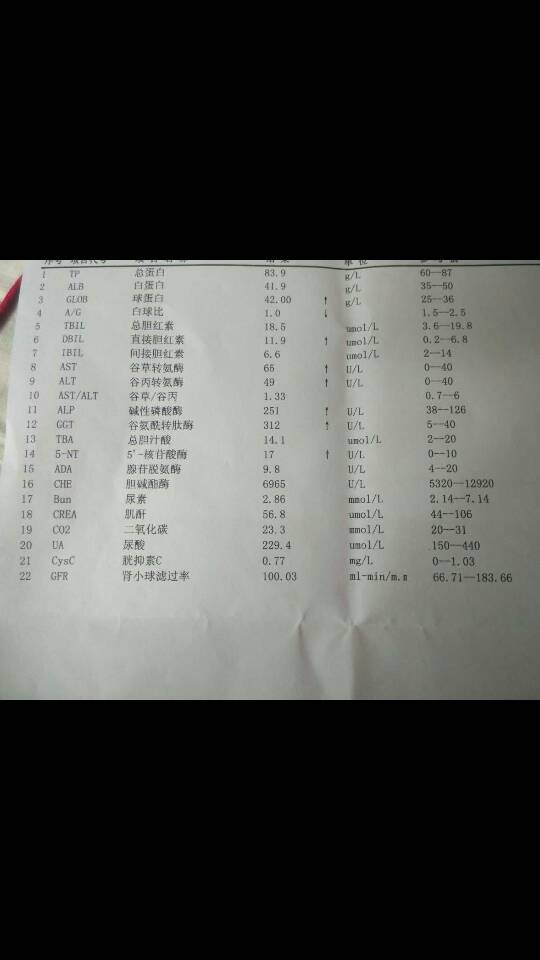 序号 项目代号 项目名称 结果 单位 参考值
1 TP 总蛋白 83.9 g/L 60--87
2 ALB 白蛋白 41.9 g/L 35--50
3 GLOB 球蛋白 42.00 ↑ g/L 25--36
4 A/G 白球比 1.0 ↓ 1.5--2.5
5 TBIL 总胆红素 18.5 umol/L 3.6--19.8
6 DBIL 直接胆红素 11.9 ↑ umol/L 0.2--6.8
7 IBIL 间接胆红素 6.6 umol/L 2--14
8 AST 谷草转氨酶 65 ↑ U/L 0--40
9 ALT 谷丙转氨酶 49 ↑ U/L 0--40
10 AST/ALT 谷草/谷丙 1.33 0.7--6
11 ALP 碱性磷酸酶 251 ↑ U/L 38--126
12 GGT 谷氨酰转肽酶 312 ↑ U/L 5--40
13 TBA 总胆汁酸 14.1 umol/L 2--20
14 5-NT 5'-核苷酸酶 17 ↑ U/L 0--10
15 ADA 腺苷脱氨酶 9.8 U/L 4--20
16 CHE 胆碱酯酶 6965 U/L 5320--12920
17 Bun 尿素 2.86 mmol/L 2.14--7.14
18 CREA 肌酐 56.8 umol/L 44--106
19 CO2 二氧化碳 23.3 mmol/L 20--31
20 UA 尿酸 229.4 umol/L 150--440
21 CysC 胱抑素C 0.77 mg/L 0--1.03
22 GFR 肾小球滤过率 100.03 ml-min/m.m 66.71--183.66